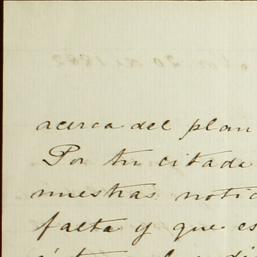 acerca del plan
Por tu citada
nuestras notic
falta y que es